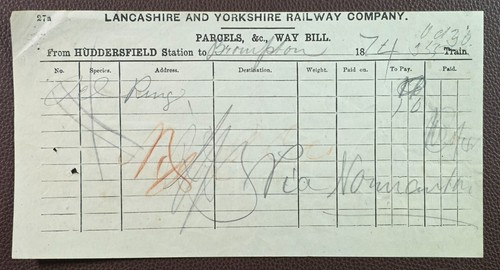 27a
LANCASHIRE AND YORKSHIRE RAILWAY COMPANY.
PARCELS, &c., WAY BILL.
From HUDDERSFIELD Station to Brompton 1874 Train.
No. Species. Address. Destination. Weight. Paid on. To Pay. Paid.
Ring
Via Normanton